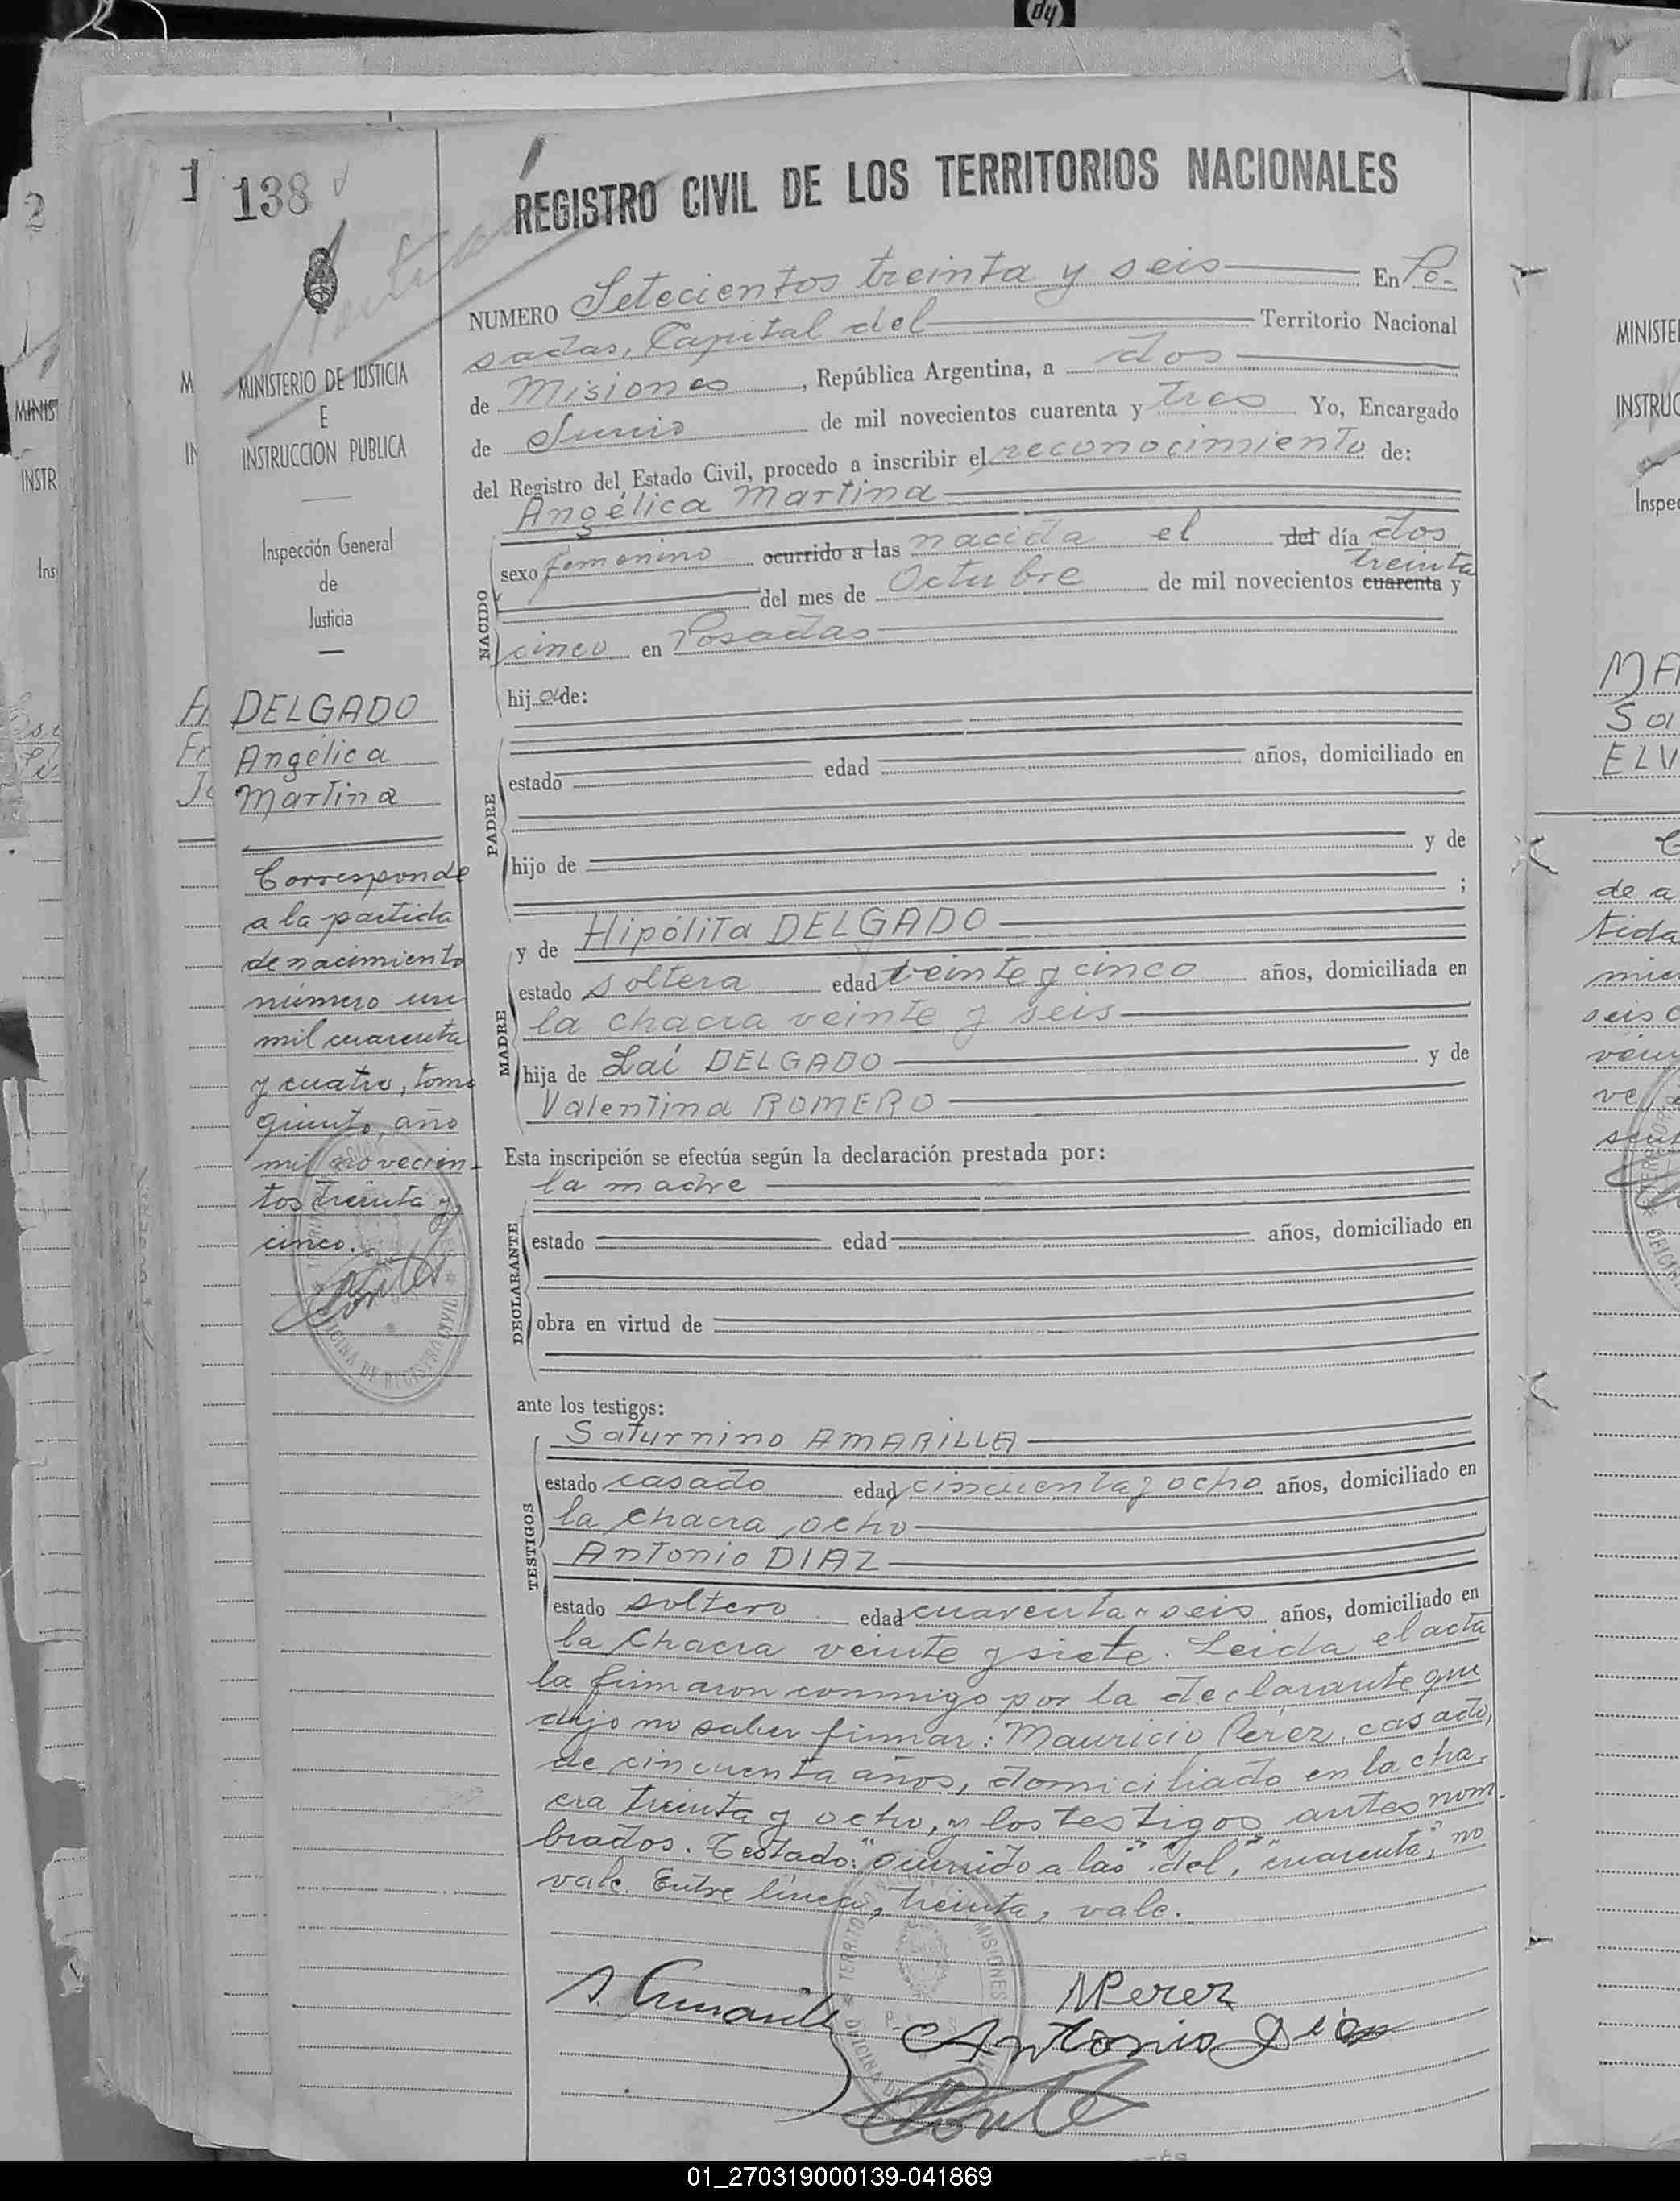 dy
138
REGISTRO CIVIL DE LOS TERRITORIOS NACIONALES
NUMERO Setecientos treinta y seis En Po-
sadas, Capital del Territorio Nacional
de Misiones, República Argentina, a dos
de Junio de mil novecientos cuarenta y tres Yo, Encargado
del Registro del Estado Civil, procedo a inscribir el reconocimiento de:
Angélica Martina
NACIDO
sexo femenino ocurrido a las nacida el del día dos
treinta
del mes de Octubre de mil novecientos cuarenta y
cinco en Posadas
hija de:
PADRE
estado edad años, domiciliado en
hijo de y de
;
MADRE
y de Hipólita DELGADO
estado soltera edad veinte y cinco años, domiciliada en
la chacra veinte y seis
hija de Lai DELGADO y de
Valentina ROMERO
Esta inscripción se efectúa según la declaración prestada por:
la madre
DECLARANTE
estado edad años, domiciliado en
obra en virtud de
ante los testigos:
TESTIGOS
Saturnino AMARILLA
estado casado edad cincuenta y ocho años, domiciliado en
la chacra ocho
Antonio DIAZ
estado soltero edad cuarenta y seis años, domiciliado en
la chacra veinte y siete. Leida el acta
la firmaron conmigo por la declarante que
dijo no saber firmar: Mauricio Perez, casado,
de cincuenta años, domiciliado en la cha-
cra treinta y ocho, y los testigos antes nom-
brados. Testado: "ocurrido a las" "del", "cuarenta", no
vale. Entre línea, treinta, vale.
S. Amarilla
MPerez
Antonio Diaz
MINISTERIO DE JUSTICIA
E
INSTRUCCION PUBLICA
Inspección General
de
Justicia
DELGADO
Angélica
Martina
Corresponde
a la partida
de nacimiento
número un
mil cuarenta
y cuatro, tomo
quinto, año
mil novecien-
tos treinta y
cinco.
OFICINA DE REGISTRO CIVIL
TERRITORIO MISIONES
MINISTE
INSTRUC
Inspe
MA
ELV
de a
tida
01_270319000139-041869